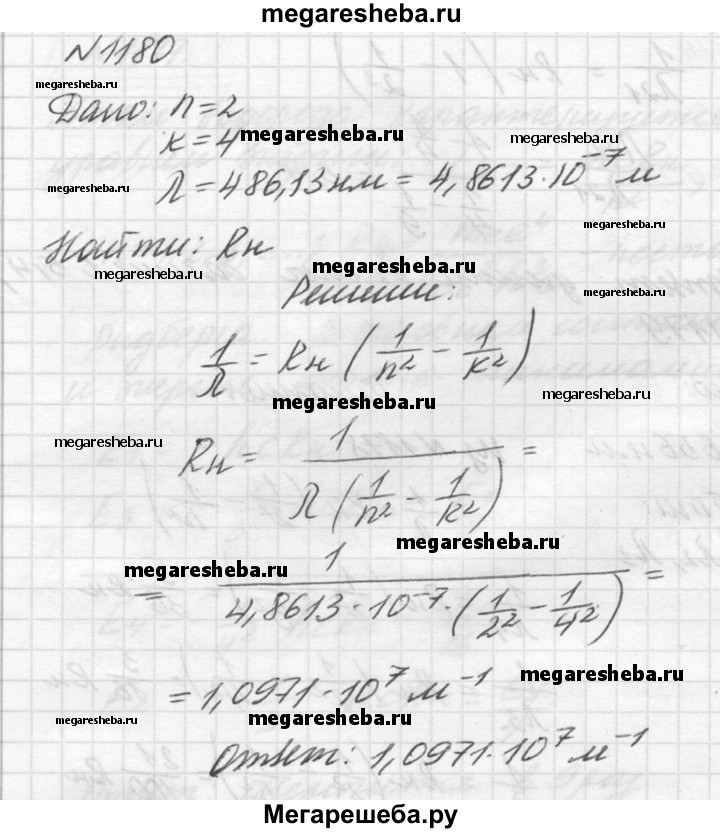 megaresheba.ru
N 1180
megaresheba.ru
Дано: n=2
к=4 megaresheba.ru megaresheba.ru
megaresheba.ru λ = 486,13 нм = 4,8613·10⁻⁷ м
megaresheba.ru
Найти: Rн
megaresheba.ru megaresheba.ru
Решение: megaresheba.ru
1/λ = Rн (1/n² - 1/к²)
megaresheba.ru megaresheba.ru
megaresheba.ru Rн = 1/(λ(1/n² - 1/к²)) =
megaresheba.ru
megaresheba.ru
= 1/(4,8613·10⁻⁷·(1/2² - 1/4²)) =
= 1,0971·10⁷ м⁻¹ megaresheba.ru
megaresheba.ru megaresheba.ru
Ответ: 1,0971·10⁷ м⁻¹
Мегарешеба.ру